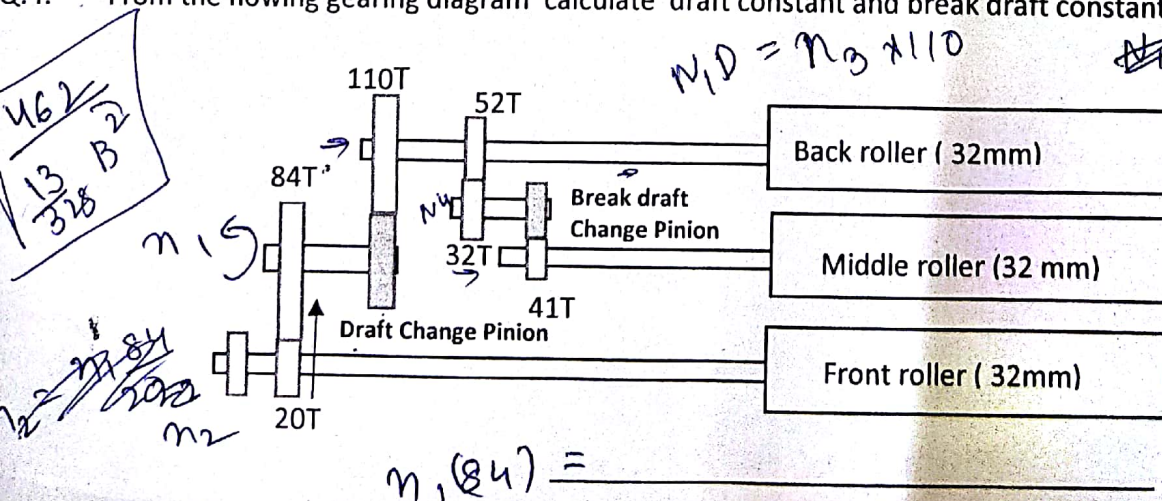 From the flowing gearing diagram calculate draft constant and break draft constant
N,D = n3 x110
462
13 B2
328
110T
52T
Back roller ( 32mm)
84T
N4
Break draft
Change Pinion
n1
32T
Middle roller (32 mm)
41T
Draft Change Pinion
Front roller ( 32mm)
n2
20T
n,(84) =